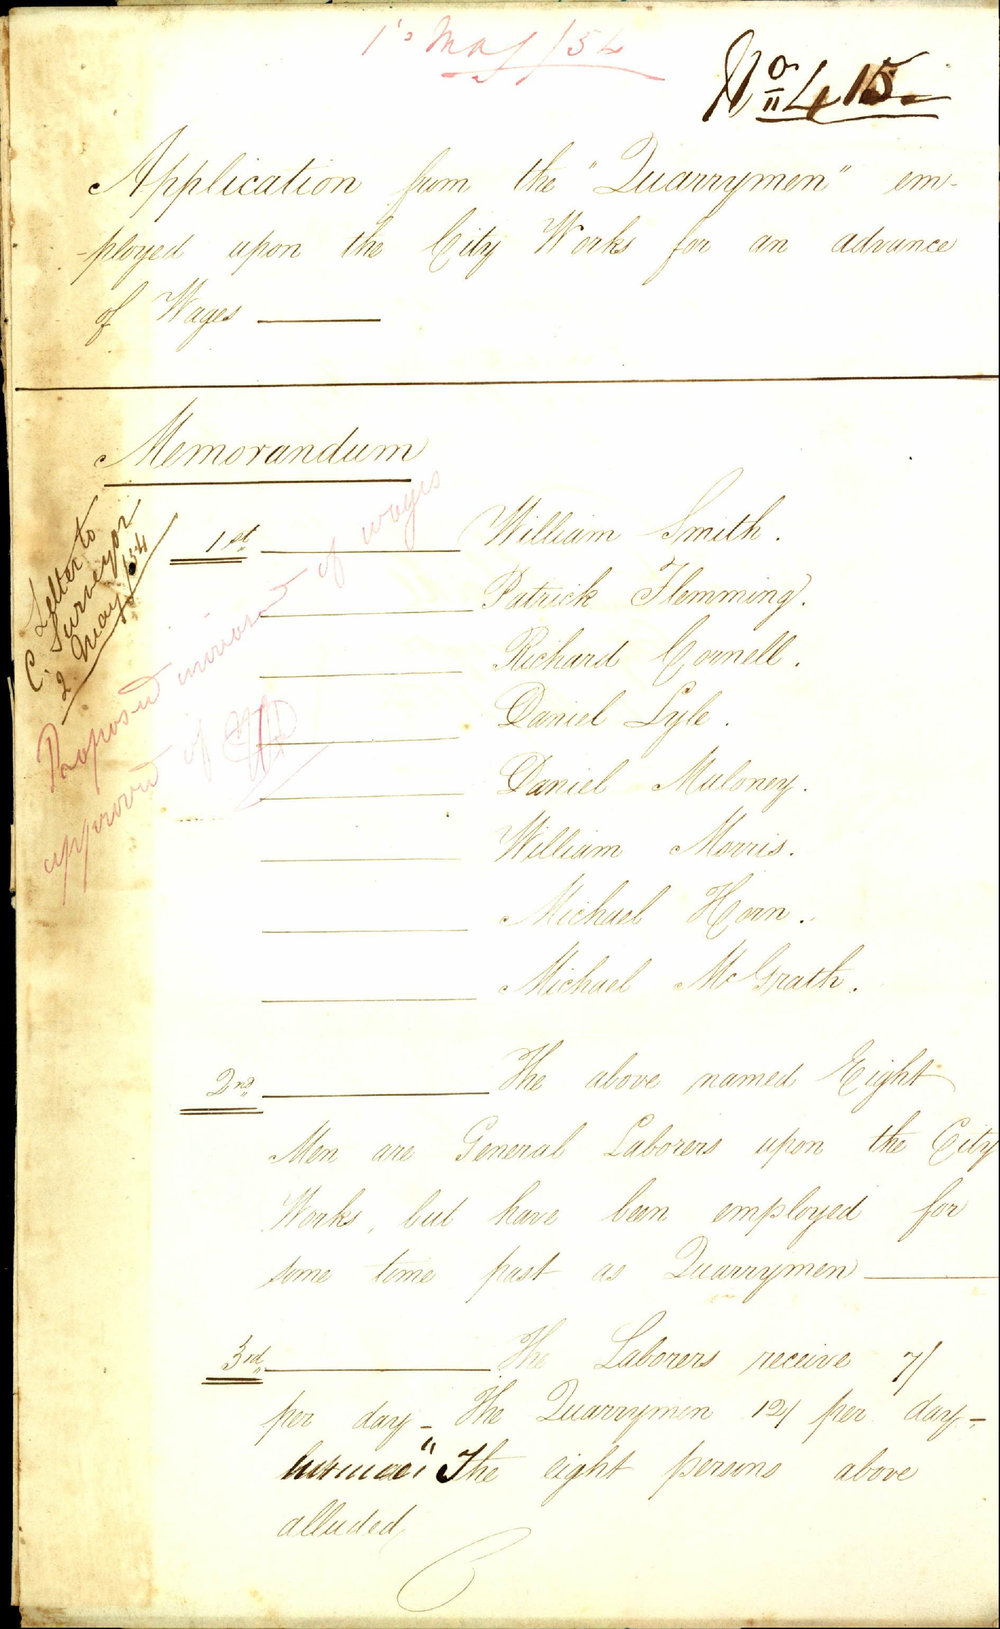 1st May /54
No 415.
Application from the "Quarrymen" em-
-ployed upon the City Works for an advance
of Wages
Memorandum
Letter to
C. Surveyor
2 May /54
Proposed increase of wages
approved of
1st William Smith.
Patrick Flemming.
Richard Cornell.
Daniel Lyle.
Daniel Maloney.
William Morris.
Michael Horn.
Michael McGrath.
2nd The above named Eight
Men are General Laborers upon the City
Works, but have been employed for
some time past as Quarrymen
3rd The Laborers receive 7/
per day - The Quarrymen 12/ per day -
The eight persons above
alluded